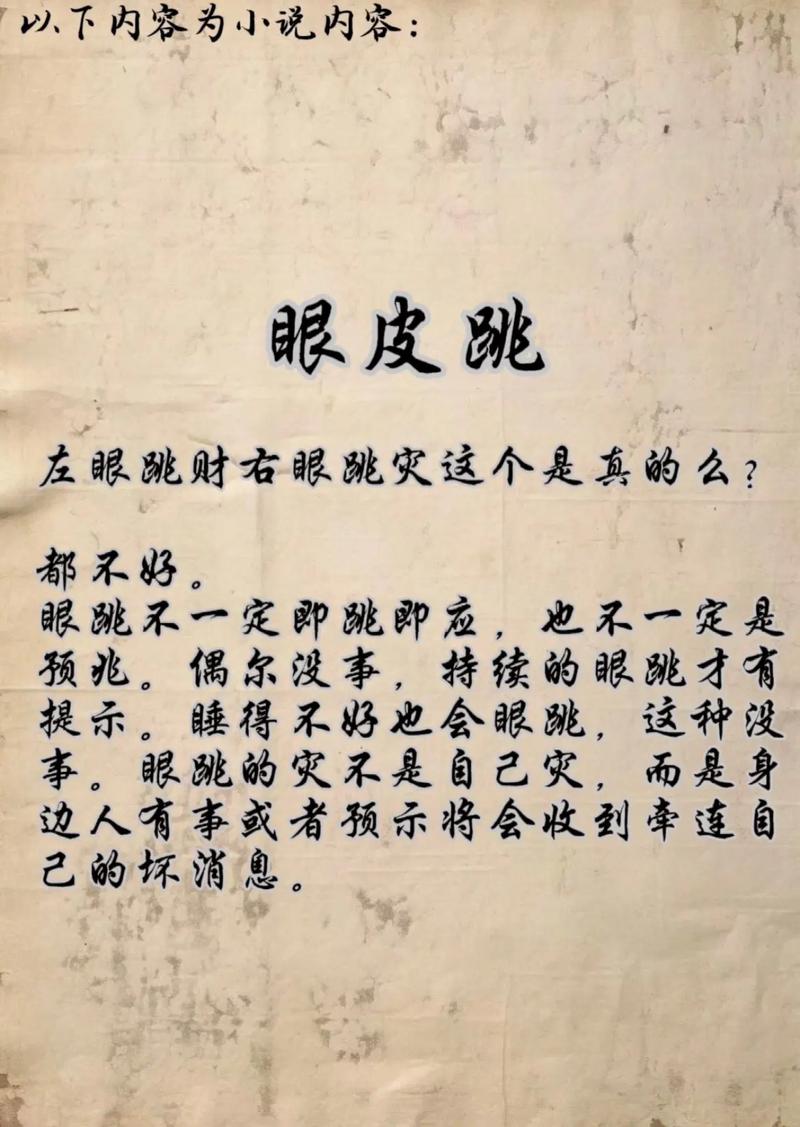 以下内容为小说内容：
眼皮跳
左眼跳财右眼跳灾这个是真的么？
都不好。
眼跳不一定即跳即应，也不一定是
预兆。偶尔没事，持续的眼跳才有
提示。睡得不好也会眼跳，这种没
事。眼跳的灾不是自己灾，而是身
边人有事或者预示将会收到牵连自
己的坏消息。